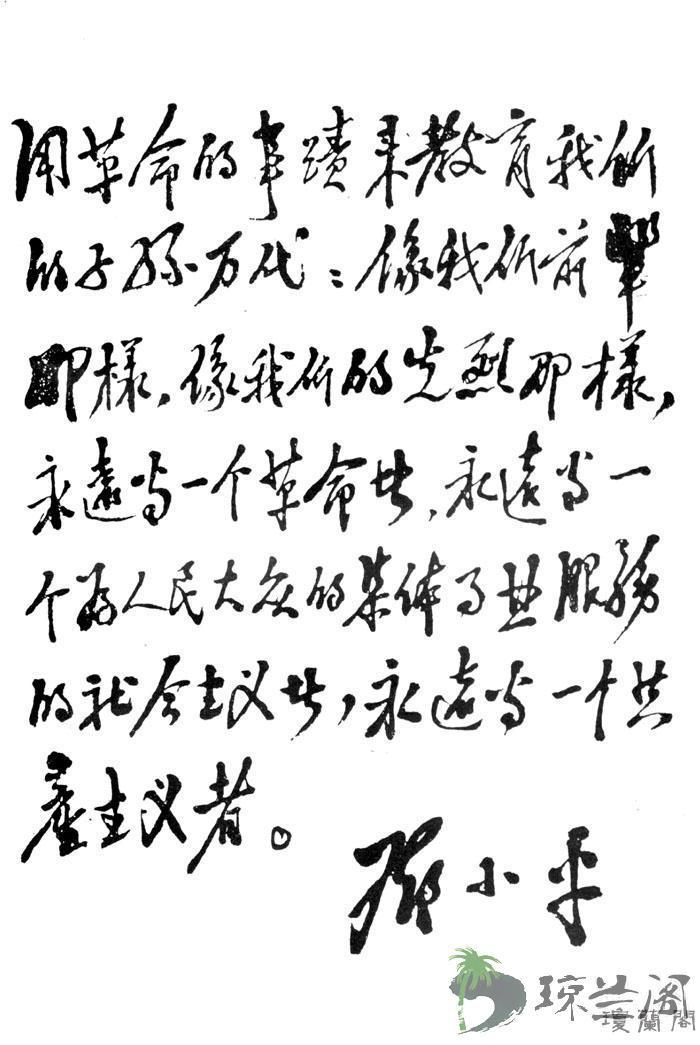 用革命的事蹟来教育我们
的子孫万代：像我们前輩
那樣，像我们的先烈那樣，
永遠当一个革命者，永遠当一
个为人民大众的集体事业服務
的社会主义者，永遠当一个共
產主义者。
邓小平
琼兰阁
瓊蘭閣